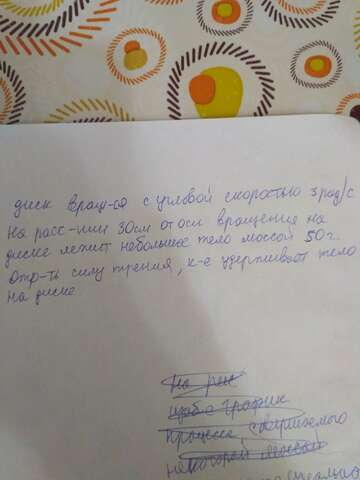 диск вращ-ся с угловой скоростью 3 рад/с
На расс-нии 30см от оси вращения на
диске лежит небольшое тело массой 50г.
Опр-ть силу трения, к-е удерживает тело
на диске
на рис
график
процесса, совершаемого
некоторой